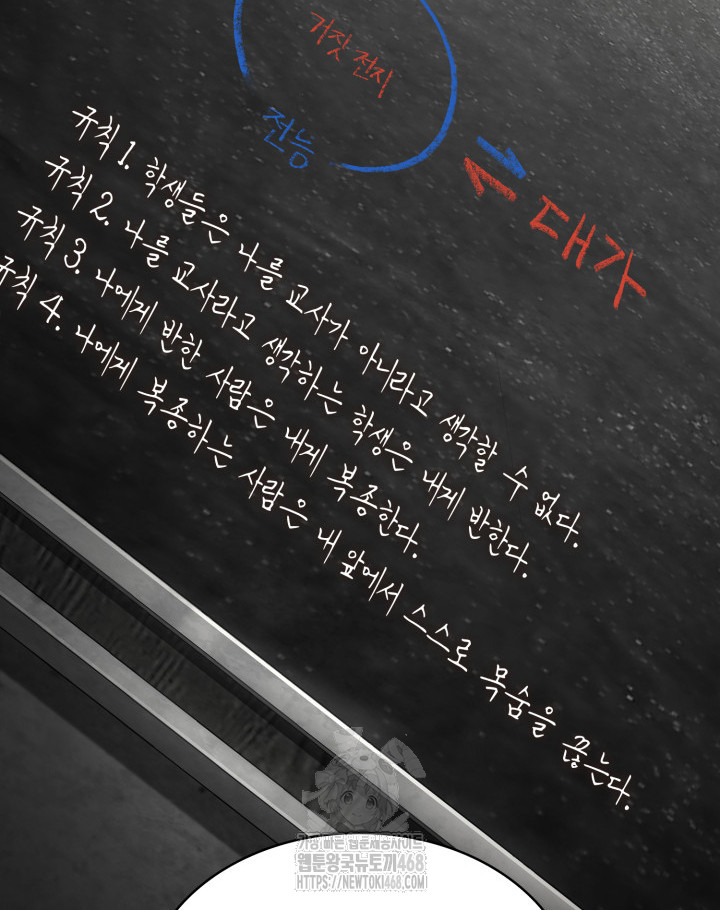 거짓 전지
전능
대가
규칙 1. 학생들은 나를 교사가 아니라고 생각할 수 없다.
규칙 2. 나를 교사라고 생각하는 학생은 내게 반한다.
규칙 3. 나에게 반한 사람은 내게 복종한다.
규칙 4. 나에게 복종하는 사람은 내 앞에서 스스로 목숨을 끊는다.
가장 빠른 웹툰제공사이트
웹툰왕국뉴토끼468
HTTPS://NEWTOKI468.COM